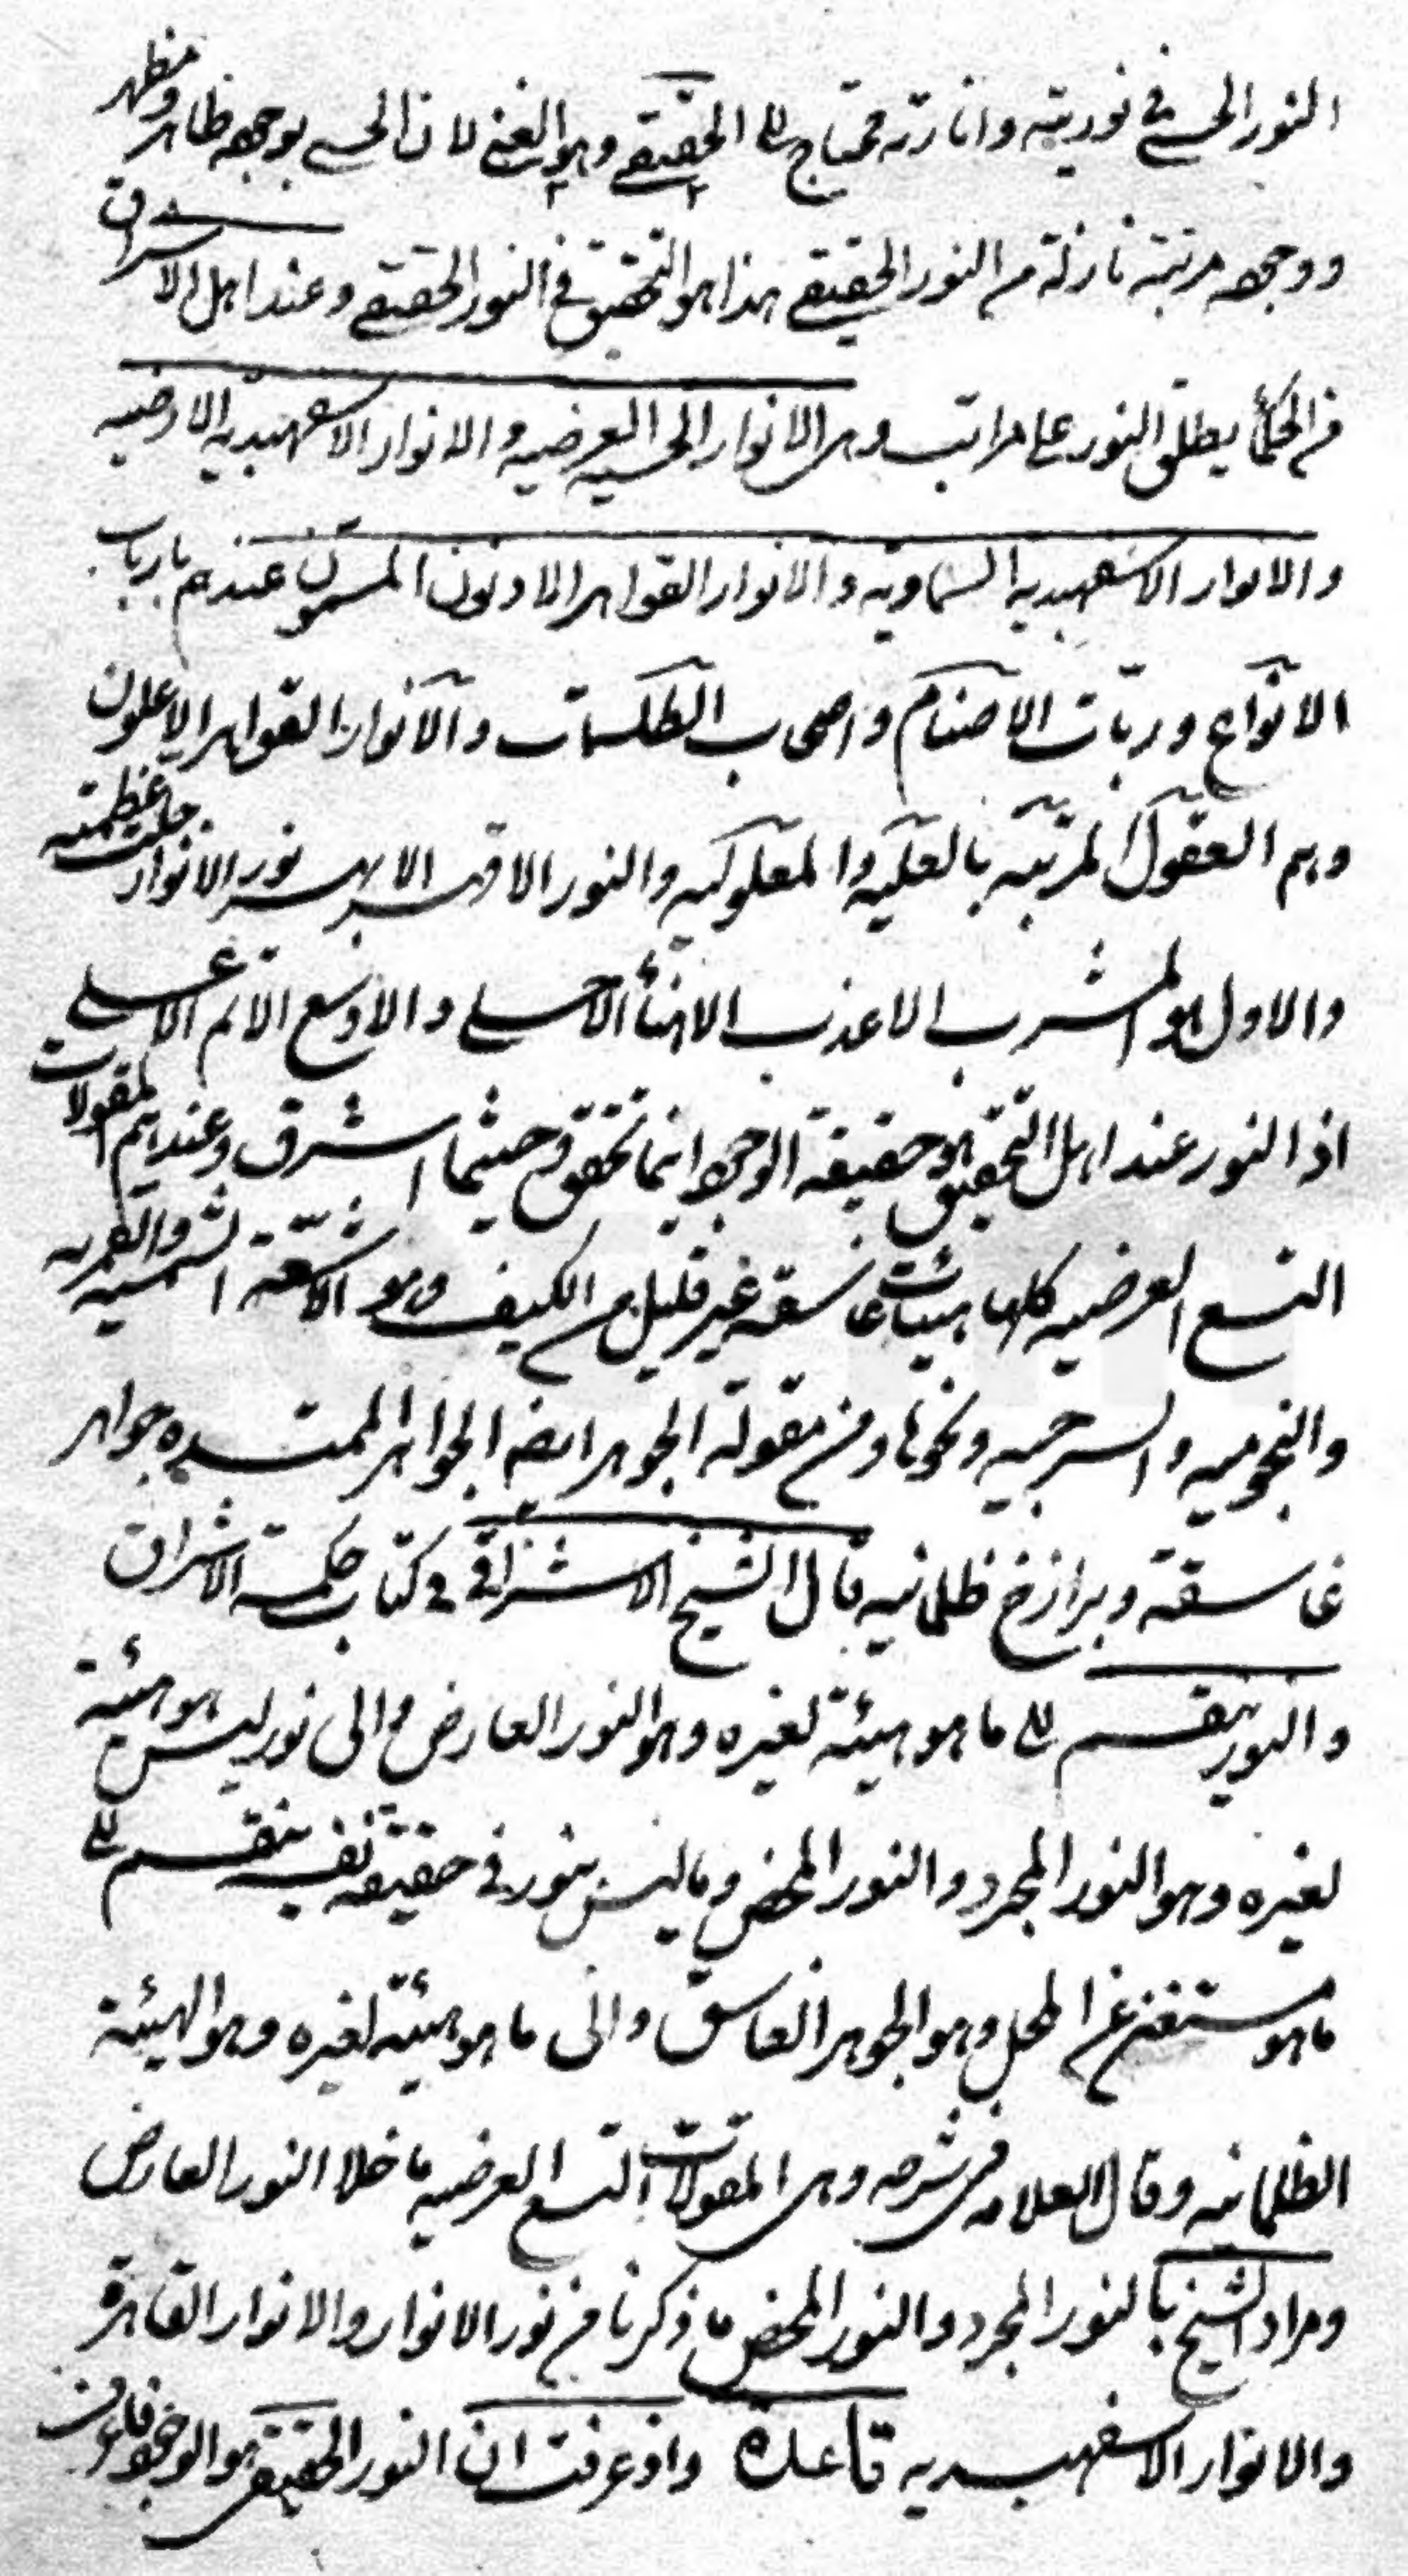 النور الحسي في نوريته وانارته محتاج الى الحقيقي وهو الغني لان الحسي بوجهه ظاهر ومظهر
ووجهه مرتبة نازلة من النور الحقيقي هذا هو التحقيق في النور الحقيقي وعند اهل الاشراق
من الحكماء يطلق النور على مراتب وهى الانوار الحسيه العرضيه والانوار الاسفهبديه الارضيه
والانوار الاسفهبديه السماوية والانوار القواهر الادنون المسمون عندهم بارباب
الانواع وربّات الاصنام واصحاب الطلسمات والانوار القواهر الاعلون
وهم العقول المرتبه بالعليه والمعلوليه والنور الاقهر الابهر نور الانوار جلت عظمته
والاول هو المشرب الاعذب الاهنأ الاحلى والاوسع الاتم الاعلى
اذ النور عند اهل التحقيق هو حقيقة الوجود اينما تحقق وحيثما اشرق وعندهم المقولات
التسع العرضيه كلها هيئات غاسقة غير قليل من الكيف وهو الاشعّة الشمسيه والقمريه
والنجوميه والسرجيه ونحوها ومن مقولة الجوهر ايضا الجواهر الممتده جواهر
غاسقة وبرازخ ظلمانيه قال الشيخ الاشراقي في كتاب حكمة الاشراق
والنور ينقسم الى ما هو هيئة لغيره وهو النور العارض والى نور ليس هو هيئة
لغيره وهو النور المجرد والنور المحض وما ليس بنور في حقيقة نفسه ينقسم الى
ما هو مستغن عن المحل وهو الجوهر الغاسق والى ما هو هيئة لغيره وهو الهيئة
الظلمانيه وقال العلامه في شرحه وهى المقولات التسع العرضيه ما خلا النور العارض
ومراد الشيخ بالنور المجرد والنور المحض ما ذكرنا من نور الانوار والانوار القاهرة
والانوار الاسفهبديه قاعدة واذ عرفت ان النور الحقيقي هو الوجود فاعرف